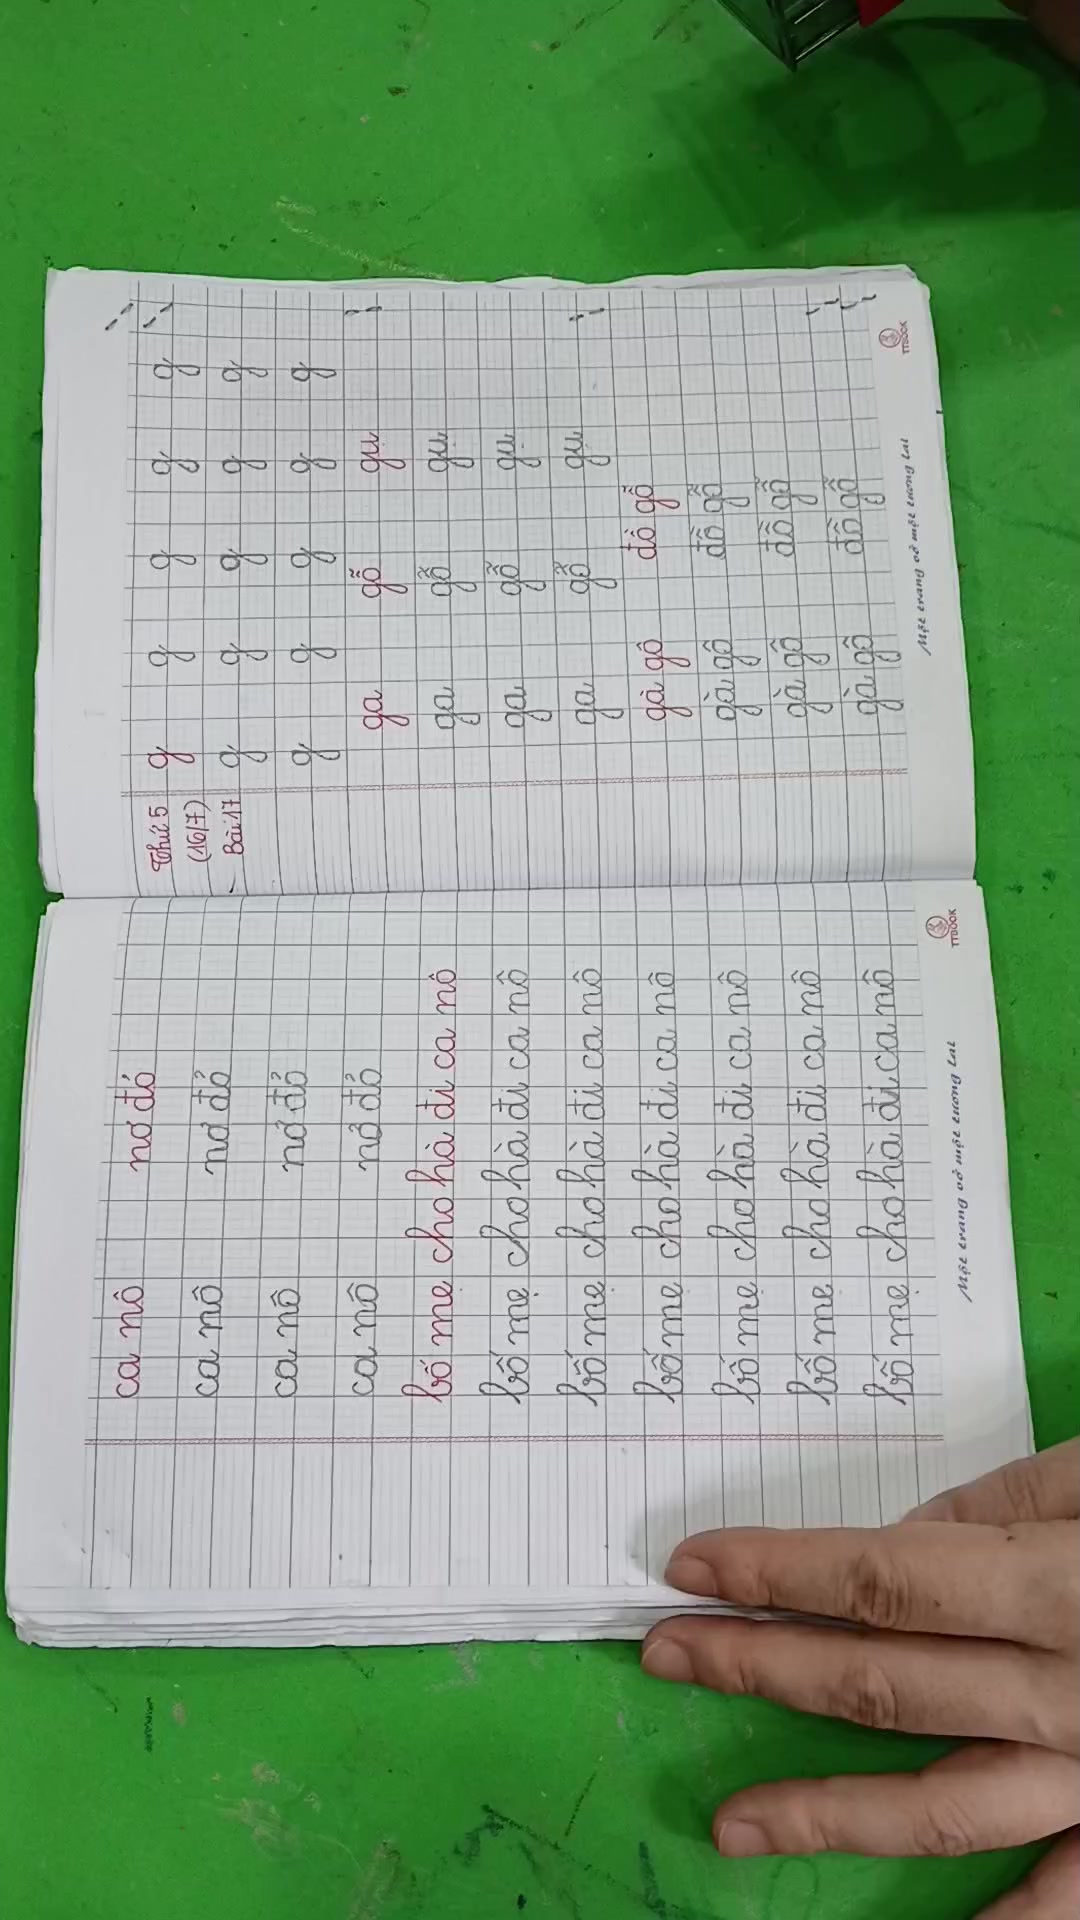 ca nô nơ đỏ
ca nô nơ đỏ
ca nô nơ đỏ
ca nô nơ đỏ
bố mẹ cho hà đi ca nô
bố mẹ cho hà đi ca nô
bố mẹ cho hà đi ca nô
bố mẹ cho hà đi ca nô
bố mẹ cho hà đi ca nô
bố mẹ cho hà đi ca nô
bố mẹ cho hà đi ca nô
Một trang vở một tương lai
TTBOOK
Thứ 5 g g g g g
(16/7)
Bài 17 g g g g g
g g g g g
ga gỗ gụ
ga gỗ gụ
ga gỗ gụ
ga gỗ gụ
gà gô đồ gỗ
gà gô đồ gỗ
gà gô đồ gỗ
gà gô đồ gỗ
Một trang vở một tương lai
TTBOOK